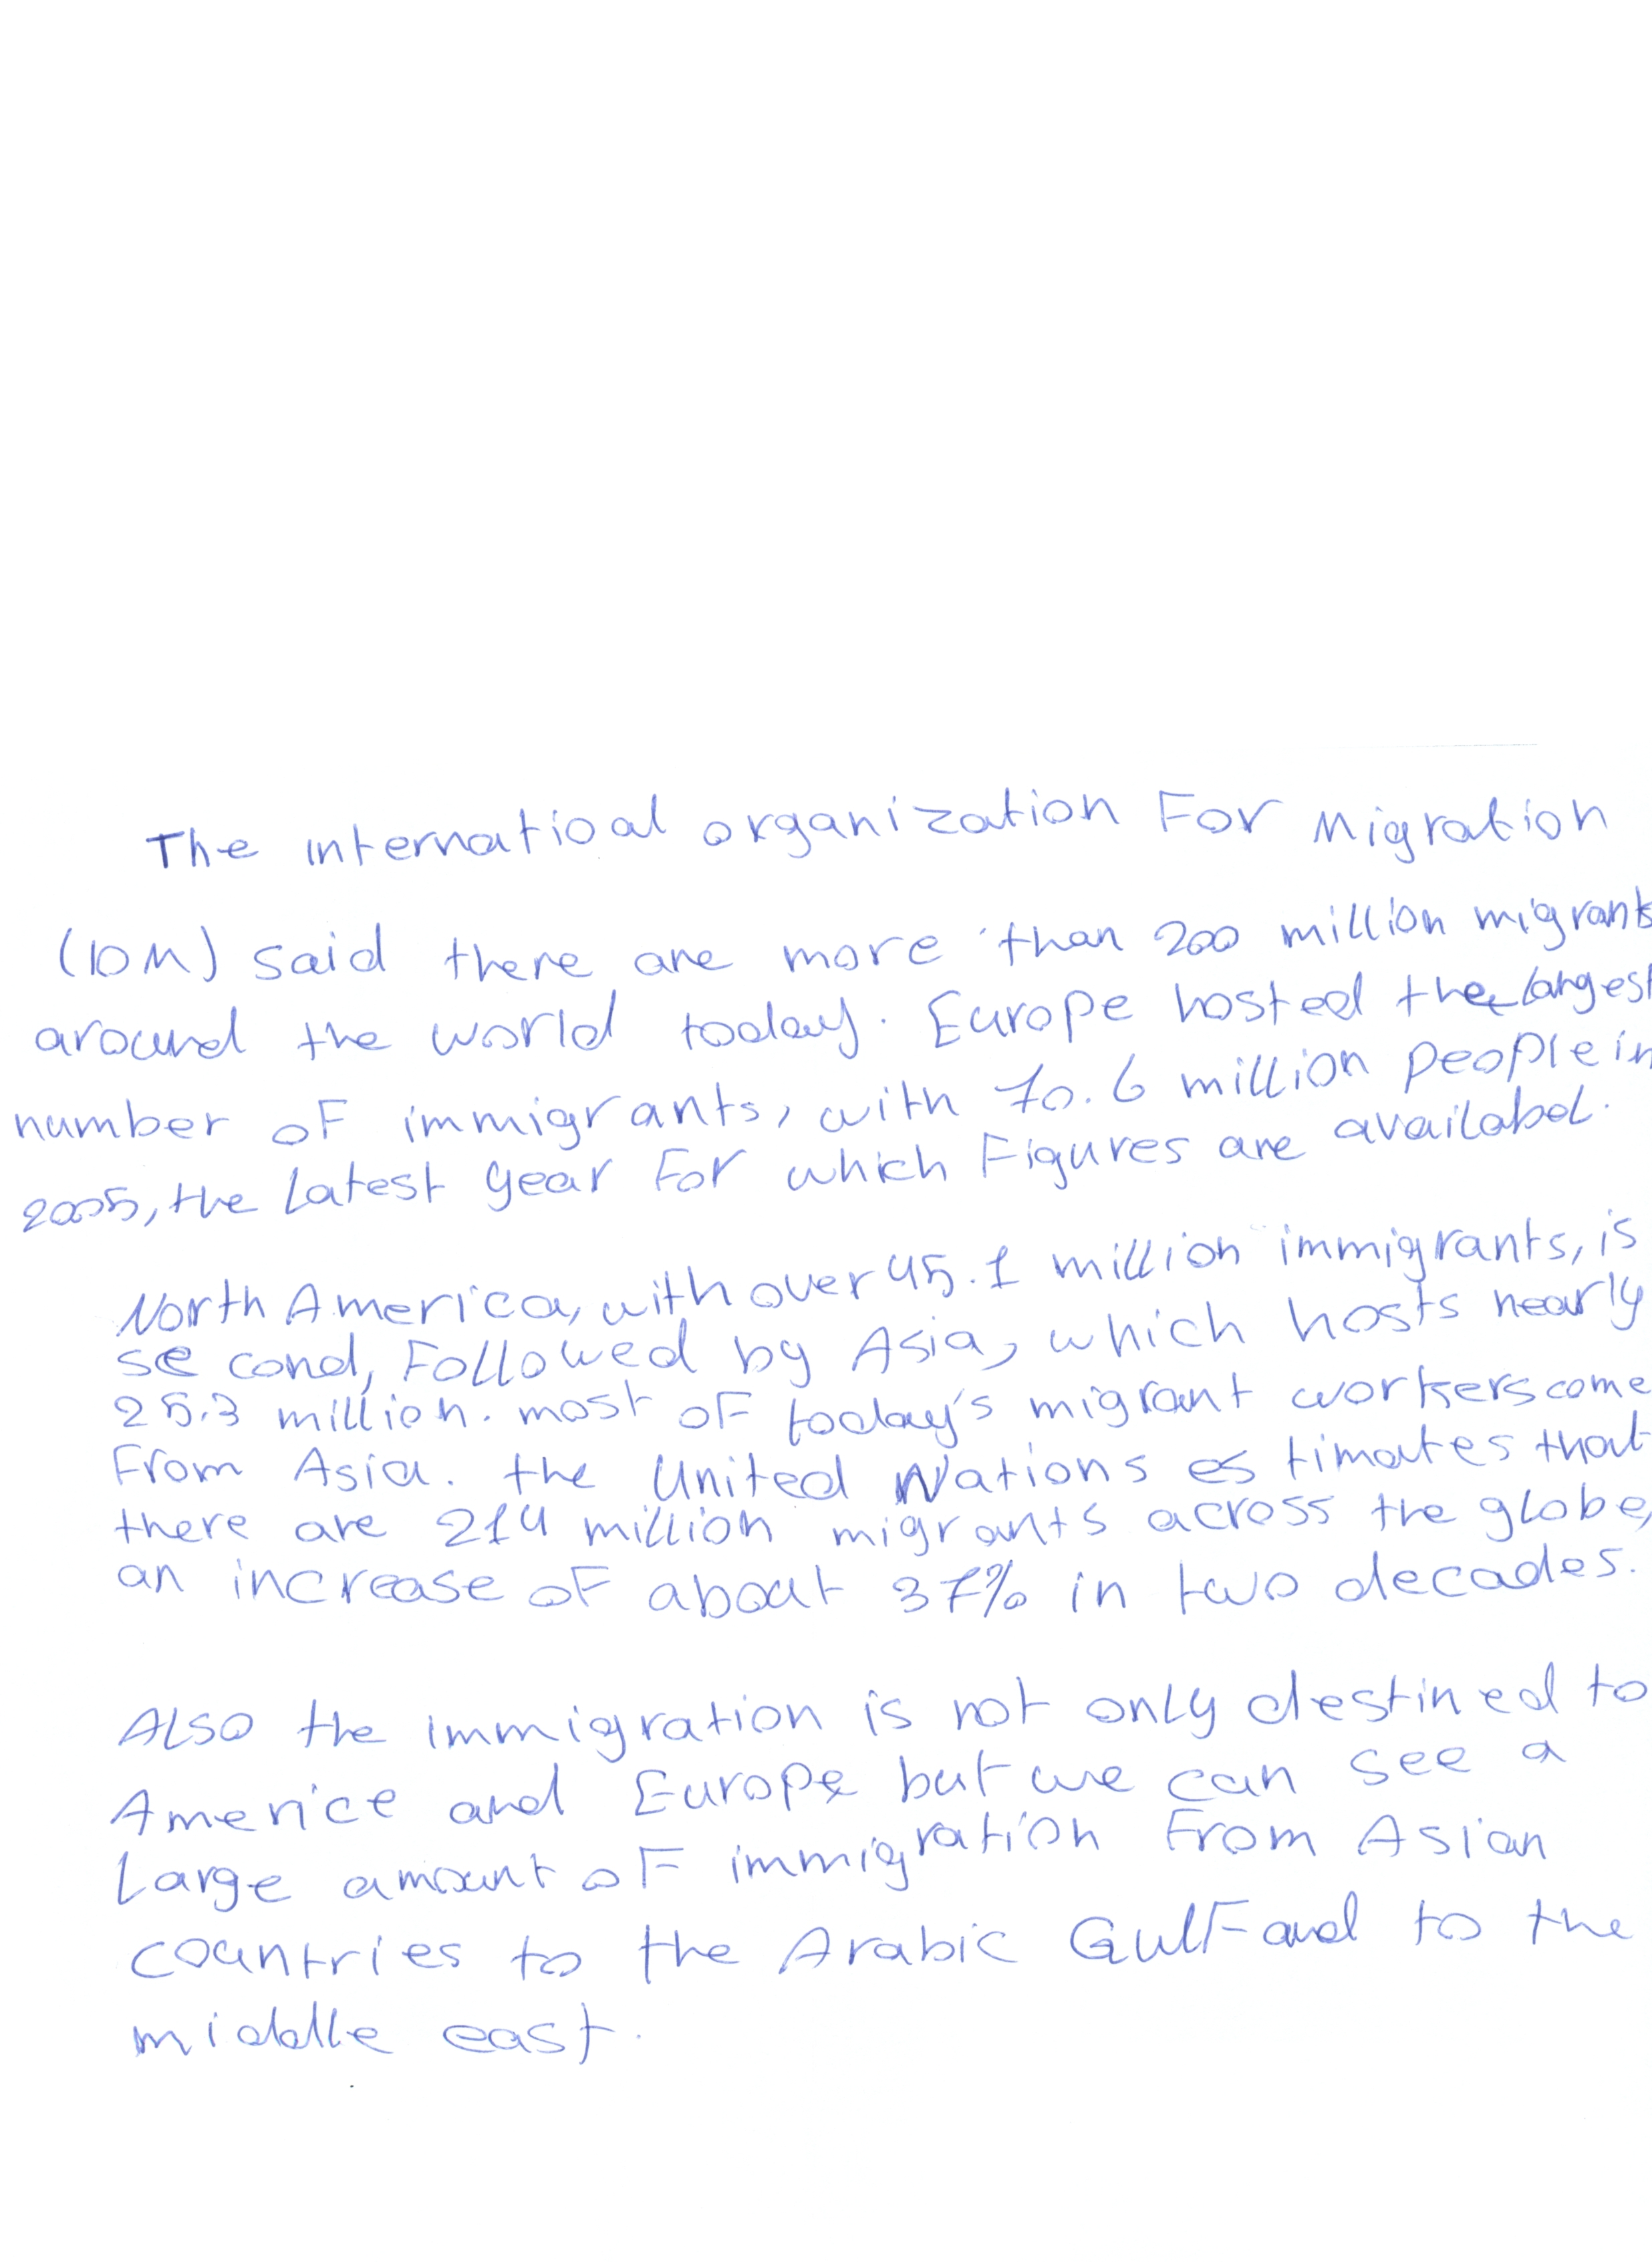 The internatioal organization For Migration
(IOM) said there are more than 200 million migrants
around the world today. Europe hosted the largest
number of immigrants, with 70.6 million people in
2005, the latest year For which Figures are availabel.
North America, with over 45.1 million immigrants, is
second, Followed by Asia, which hosts nearly
25.3 million. most of today's migrant workers come
From Asia. the United Nations estimates that
there are 214 million migrants across the globe,
an increase of about 37% in two decades.
Also the immigration is not only destined to
Americe and Europe but we can see a
large amount of immigration From Asian
countries to the Arabic Gulf and to the
middle east.